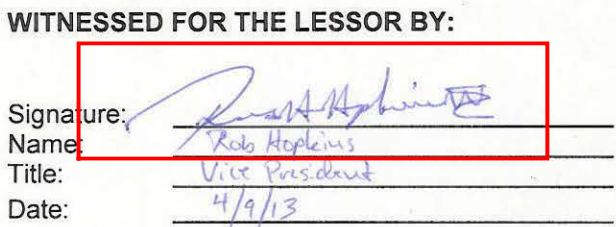 WITNESSED FOR THE LESSOR BY:
Signature:
Name: Rob Hopkins
Title: Vice President
Date: 4/9/13